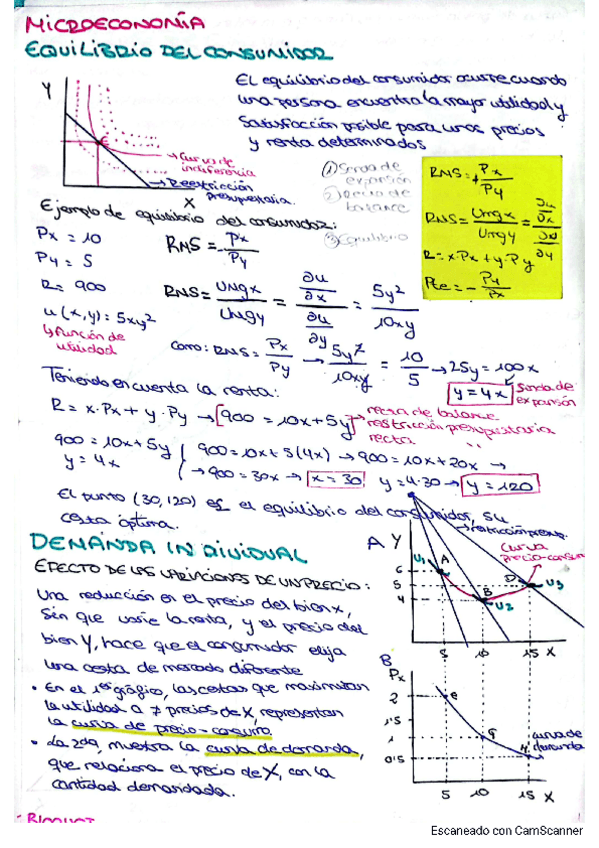 MICROECONOMÍA
EQUILIBRIO DEL CONSUMIDOR
El equilibrio del consumidor ocurre cuando
una persona encuentra la mayor utilidad y
satisfacción posible para unos precios
y renta determinados
Y
E
Curva de
indiferencia
Reestricción
presupuestaria.
X
① Senda de
expansión
② Recta de
balance
③ Equilibrio
RMS = + Px / Py
RMS = UMgx / UMgy = ∂u/∂x / ∂u/∂y
R = x·Px + y·Py
Pte = - Py / Px
Ejemplo de equilibrio del consumidor:
Px = 10
Py = 5
R = 900
u(x,y) = 5xy²
↳ función de
utilidad
RMS = - Px / Py
RMS = UMgx / UMgy = ∂u/∂x / ∂u/∂y = 5y² / 10xy
como: RMS = Px / Py → 5y² / 10xy = 10 / 5 → 25y = 100x
y = 4x
Senda de
expansión
Teniendo en cuenta la renta:
R = x·Px + y·Py → 900 = 10x + 5y
recta de balance
restricción presupuestaria
recta "
900 = 10x + 5y
y = 4x
900 = 10x + 5(4x) → 900 = 10x + 20x →
→ 900 = 30x → x = 30 y = 4·30 → y = 120
El punto (30,120) es el equilibrio del consumidor, su
cesta óptima.
DEMANDA INDIVIDUAL
EFECTO DE LAS VARIACIONES DE UN PRECIO:
Una reducción en el precio del bien x,
sin que varíe la renta, y el precio del
bien Y, hace que el consumidor elija
una cesta de mercado diferente
• En el 1er gráfico, las cestas que maximizan
la utilidad a ≠ precios de X, representan
la curva de precio-consumo.
• La 2da, muestra la curva de demanda,
que relaciona el precio de X, con la
cantidad demandada.
A Y
restricción presup.
Curva
precio-consumo
U1 A
6
5
4
B
U2
D
U3
5 10 15 X
B
Px
2
1'5
1
0'5
E
G
H
curva de
demanda
5 10 15 X
Escaneado con CamScanner